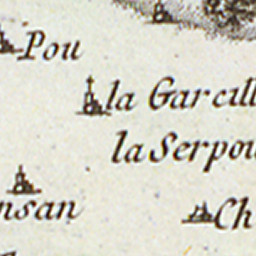 Pou
la Garcill
la Serpou
nsan
Ch